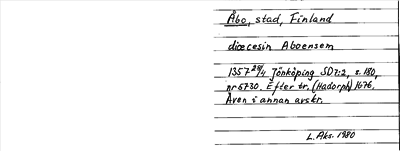 Åbo, stad, Finland
diœcesin Aboensem
1357 28/4 Jönköping SD7:2, s. 180,
nr 6730. Efter tr. (Hadorph) 1676.
Även i annan avskr.
L. Aks. 1980